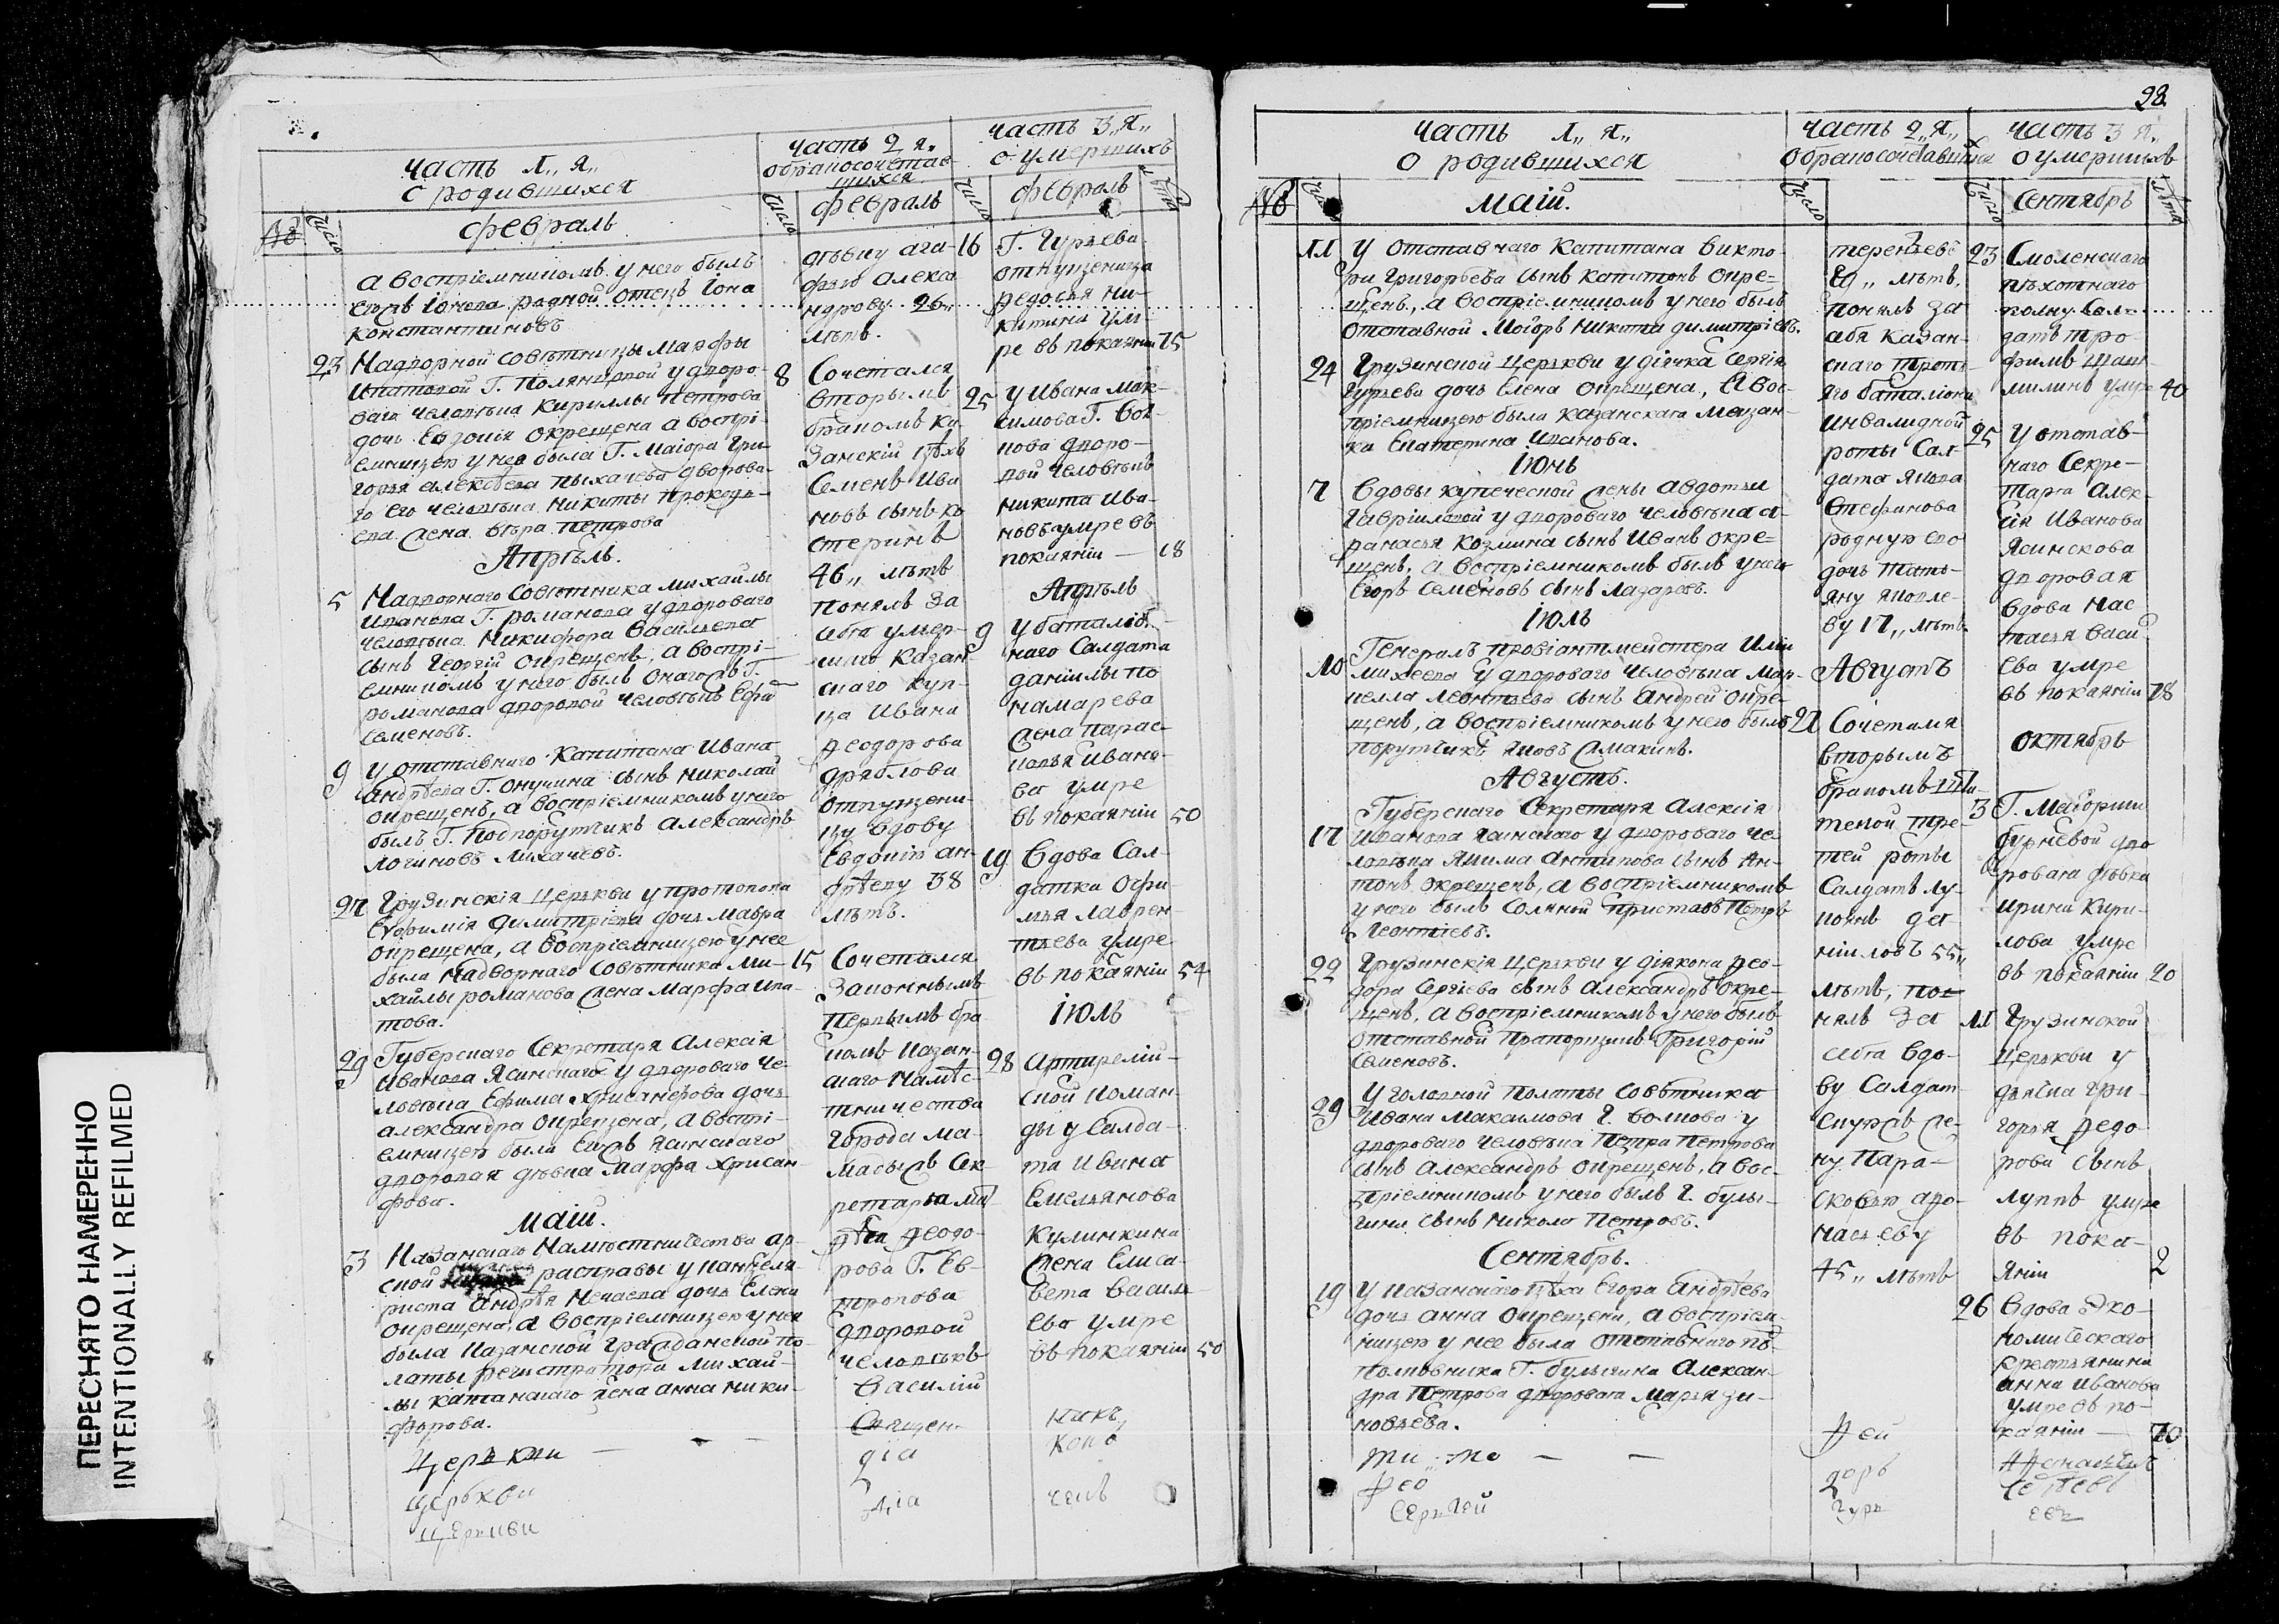 ПЕРЕСНЯТО НАМЕРЕННО
INTENTIONALLY REFILMED
часть 1,, я,,
о родившихся
№ число
февраль
а воспріемникомъ у него былъ
родной отецъ Іона
Константиновъ
23 Надворной совѣтницы Марфы
Ипатовой Г. Полянской у дворо-
ваго человѣка Кириллы Петрова
дочь Евдокія окрещена а воспрі-
емницею у нея была Г. Маіора Гри-
горья Алексѣева Пыхачева дворова-
го его человѣка Никиты Прокофь-
ева жена вѣра Петрова
Апрѣль.
5 Надворнаго Совѣтника Михайлы
Иванова Г. Романова у двороваго
человѣка Никифора Васильева
сынъ Георгій окрещенъ, а воспрі-
емникомъ у него былъ онаго жъ Г.
Романова дворовой человѣкъ
Семеновъ.
9 У отставнаго Капитана Ивана
Андрѣева Г. Онучина сынъ Николай
окрещенъ, а воспріемникомъ у него
былъ Г. Подпорутчикъ Александръ
Логиновъ Лихачевъ.
27 Грузинскія Церькви у протопопа
Евфимія Димитріева дочь Мавра
окрещена, а воспріемницею у нее
была Надворнаго Совѣтника Ми-
хайлы Романова жена Марфа Ипа-
това.
29 Губерскаго Секретаря Алексія
Иванова Ясинскаго у двороваго че-
ловѣка Ефима Хрисанфова дочь
Александра окрещена, а воспрі-
емницею была Ясинскаго
дворовая дѣвка Марфа Хрисан-
фова.
Маій.
3 Казанскаго Намѣстничества ар-
ской расправы у канцеля-
риста Андрѣя Нечаева дочь Елена
окрещена, а воспріемницею у нея
была Казанской гражданской по-
латы регистратора Михай-
лы жена Анна Ники-
форова.
Церькви
церькви
церькви
часть 2 я.
о браносочетав-
шихся
число
февраль
дѣвку Ага-
фью Алекса
ндрову 26,,
лѣтъ.
8 Сочетался
вторымъ
бракомъ Ка-
занскій цѣхъ
Семенъ Ива
новъ сынъ Ко
стеринъ
46,, лѣтъ
понялъ за
себя умер-
шаго Казан
скаго Куп-
ца Ивана
Ѳеодорова
Дряблова
отпущени-
цу вдову
Евдокію Ан-
дрѣеву 38
лѣтъ.
15 Сочетался
Законнымъ
первымъ бра
комъ Казан-
скаго Намѣс-
тничества
города Ма-
мадышъ Сек-
ретаря
Ѳеодо-
рова Г. Ев-
тропова
дворовой
человѣкъ
Василій
Священ-
діа
діа
часть 3,, я,,
о умершихъ
число
февраль
лѣта
16 Г. Гурьева
отпущеница
Ѳедосья Ни-
китина ум
ре въ покаяніи 75
25 У Ивана Мак-
симова Г. Вол-
кова дворо-
вой человѣкъ
Никита Ива-
новъ умре въ
покаяніи — 18
Апрѣль
9 У баталіо-
наго Салдата
Данилы По
намарева
жена Парас-
ковья Ивано-
ва умре
въ покаяніи 50
19 Вдова Сал-
датка Офи-
мья Лаврен-
тьева умре
въ покаяніи 54
Іюль
28 Артилерій-
ской Коман-
ды у Салда-
та Ивана
Емельянова
Кулинкина
жена Елиса-
вета Василь-
ева умре
въ покаяніи 50
никъ
конъ
28.
часть 1,, я,,
о родившихся
№ число
Маій.
11 У отставнаго Капитана Викто-
ри Григорьева сынъ Капитонъ окре-
щенъ, а воспріемникомъ у него былъ
отставной Маіоръ Никита Димитріевъ.
24 Грузинской Церькви у діячка Сергія
Гурьева дочь Елена окрещена, а вос-
пріемницею была Казанскага мещан-
ка Екатерина Иванова.
Іюнь
7 Вдовы купеческой жены Авдотьи
Гавріиловой у двороваго человѣка А-
ѳанасья Козмина сынъ Иванъ окре-
щенъ, а воспріемникомъ былъ у него
Егоръ Семеновъ сынъ Лазаревъ.
Іюль
10 Генералъ провіантмейстера Ильи
Михеева у двороваго человѣка Мар-
келла Леонтьева сынъ Андрей окре-
щенъ, а воспріемникомъ у него былъ
порутчикъ Яковъ Самакинъ.
Августъ.
17 Губерскаго Секретаря Алексія
Иванова Ясинскаго у двороваго че-
ловѣка Якима Антипова сынъ Ан-
тонъ окрещенъ, а воспріемникомъ
у него былъ Соляной приставъ Петръ
Леонтіевъ.
22 Грузинскія Церькви у діякона Ѳео-
дора Сергіева сынъ Александръ окре-
щенъ, а воспріемникомъ у него былъ
отставной Прапорщикъ Григорій
Семеновъ.
29 Уголовной Полаты Совѣтника
Ивана Максимова Г. Волкова у
двороваго человѣка Петра Петрова
сынъ Александръ окрещенъ, а вос-
пріемникомъ у него былъ Г. Булы-
гина сынъ Никола Петровъ.
Сентябрь.
19 У Казанскаго цѣха Егора Андрѣева
дочь Анна окрещена, а воспріем-
ницею у нее была отставнаго по
полковника Г. Булыгина Алексан-
дра Петрова дворовага Марья Зи-
новьева.
ти мо
Ѳео
Сергей
часть 2,, я,,
о браносочетавшихся
число
Терентьевъ
лѣтъ,
понялъ за
себя Казан-
скаго треть-
яго баталіона
инвалидной
роты Сал-
дата Якова
Стефанова
родную его
дочь Тать-
яну Яковле-
ву 17,, лѣтъ.
Августъ
27 Сочетался
вторымъ
бракомъ
тей роты
Салдатъ Лу-
кьянъ Да-
ніиловъ 55,,
лѣтъ, по-
нялъ за
себя вдо-
ву Салдат-
скую же-
ну Пара-
сковью Аѳо-
насьеву
45,, лѣтъ
Ѳей
доръ
Гурь
часть 3 я,,
о умершихъ
число
Сентябрь
лѣта
23 Смоленскаго
пѣхотнаго
полку Сал-
датъ Тро-
фимъ
умре 40
25 У отстав-
наго Секре-
таря Алек-
сія Иванова
Ясинскова
дворовая
вдова Нас
тасья Васи-
ева умре
въ покаяніи 78
Октябрь
3 Г. Маіорши
дво
ровая дѣвка
Ирина Кири-
лова умре
въ покаяніи 20
11 Грузинской
церькви у
дьячка Гри-
горья Ѳедо-
рова сынъ
Луппъ умре
въ пока-
яніи 2
26 Вдова Эко-
номическаго
крестьянина
Анна Иванова
умре въ по-
каяніи — 70